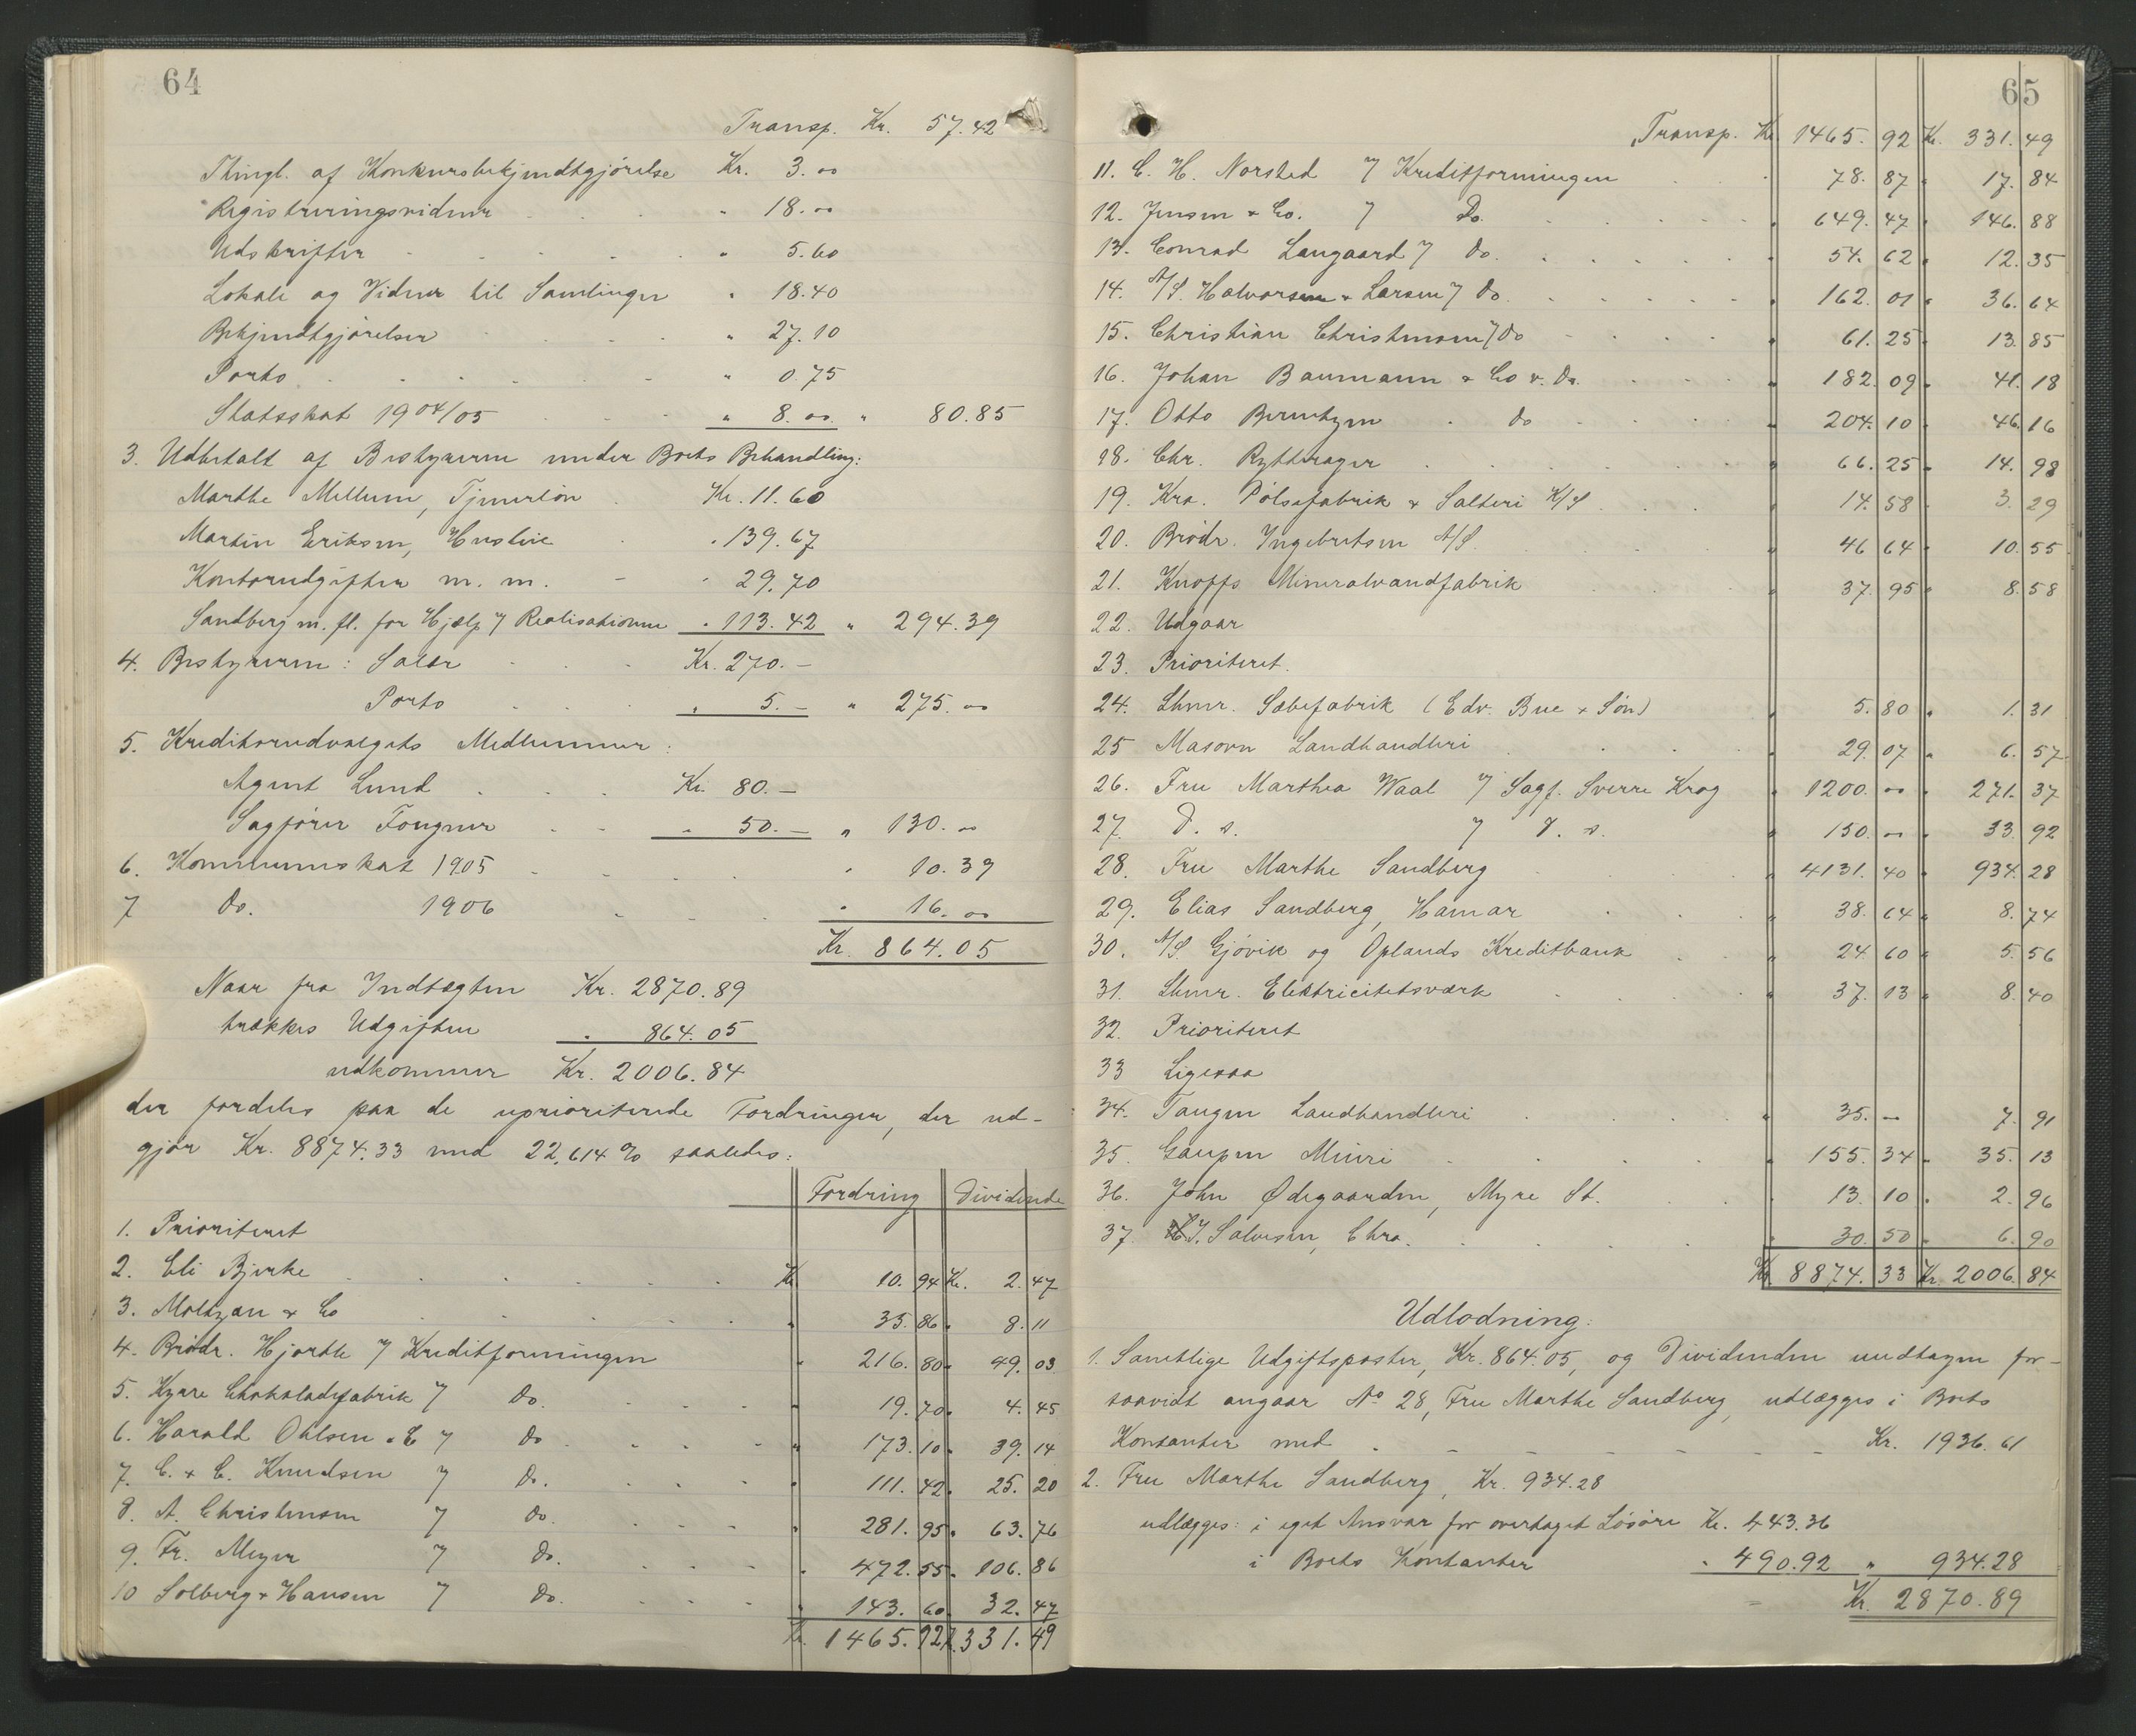 64
Transp. Kr. 57.42
Thingl. af Konkursbekjendtgjørelse Kr. 3.00
Registreringsvidner " 18.00
Udskrifter " 5.60
Lokale og Vidner til Samlinger " 18.40
Bekjendtgjørelser " 27.10
Porto " 0.75
Statsskat 1904/05 " 8.00 " 80.85
3. Udbetalt af Bestyreren under Boets Behandling:
Marthe Mellum, Tjenerløn Kr. 11.60
Martin Eriksen, Husleie " 139.67
Kontorudgifter m. m. " 29.70
Sandberg m. fl. for Hjælp v/ Realisationen " 113.42 " 294.39
4. Bestyreren: Salær Kr. 270.–
Porto " 5.– " 275.00
5. Kreditorudvalgets Medlemmer:
Agent Lund Kr. 80.–
Sagfører Fougner " 50.– " 130.00
6. Kommuneskat 1905 " 10.39
7 do. 1906 " 16.00
Kr. 864.05
Naar fra Indtægten Kr. 2870.89
trækkes Udgiften " 864.05
udkommer Kr. 2006.84
der fordeles paa de uprioriterede Fordringer, der ud-
gjør Kr. 8874.33 med 22,614 % saaledes:
Fordring Dividende
1. Prioriteret
2. Eli Bjerke Kr. 10.94 Kr. 2.47
3. Moltzau & Co " 35.86 " 8.11
4. Brødr. Hjorth v/ Kreditforeningen " 216.80 " 49.03
5. Kyrre Chokoladefabrik v/ Do. " 19.70 " 4.45
6. Harald Ohlsen & C v/ Do " 173.10 " 39.14
7. C. & C. Knudsen v/ Do. " 111.42 " 25.20
8. A. Christensen v/ Do. " 281.95 " 63.76
9. Fr. Meyer v/ Do. " 472.55 " 106.86
10 Solberg & Hansen v/ Do. " 143.60 " 32.47
Kr. 1465.92 Kr. 331.49
65
Transp. Kr. 1465.92 Kr. 331.49
11. C. H. Norsted v/ Kreditforeningen " 78.87 " 17.84
12. Jensen & Co. v/ Do. " 649.47 " 146.88
13. Conrad Langaard v/ Do. " 54.62 " 12.35
14. A/S. Halvorsen & Larsen v/ Do. " 162.01 " 36.64
15. Christian Christensen v/ Do " 61.25 " 13.85
16. Johan Baumann & Co v. Do. " 182.09 " 41.18
17. Otto Berentzen do " 204.10 " 46.16
18. Chr. Rytterager " 66.25 " 14.98
19. Kra. Pølsefabrik & Salteri A/S " 14.58 " 3.29
20. Brødr. Ingebretsen A/S. " 46.64 " 10.55
21. Knopffs Mineralvandfabrik " 37.95 " 8.58
22. Udgaar
23. Prioriteret.
24. Lhmr. Sæbefabrik (Edv. Bue & Søn) " 5.80 " 1.31
25 Masovn Landhandleri " 29.07 " 6.57
26. Fru Marthea Waal v/ Sagf. Sverre Krog " 1200.00 " 271.37
27. D. s. v/ D. s. " 150.00 " 33.92
28. Fru Marthe Sandberg " 4131.40 " 934.28
29. Elias Sandberg, Hamar " 38.64 " 8.74
30. A/S. Gjøvik og Oplands Kreditbank " 24.60 " 5.56
31. Lhmr. Elektricitetsværk " 37.13 " 8.40
32. Prioriteret
33 Ligesaa
34. Tangen Landhandleri " 35.– " 7.91
35. Gaupen Meieri " 155.34 " 35.13
36. John Ødegaarden, Myre St. " 13.10 " 2.96
37. J. Salvesen, Chra. " 30.50 " 6.90
Kr. 8874.33 Kr. 2006.84
Udlodning:
1. Samtlige Udgiftsposter, Kr. 864.05, og Dividenden undtagen for-
saavidt angaar No 28, Fru Marthe Sandberg, udlægges i Boets
Kontanter med Kr. 1936.61
2. Fru Marthe Sandberg, Kr. 934.28
udlægges: i eget Ansvar for overtaget Løsøre Kr. 443.36
i Boets Kontanter " 490.92 " 934.28
Kr. 2870.89